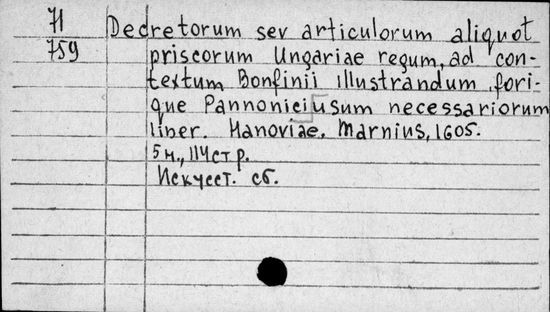 71
759
Decretorum sev articulorum aliquot
priscorum Ungariae regum, ad con-
textum Bonfinii illustrandum, fori-
que Pannonici usum necessariorum
liber. Hanoviae, Marnius, 1605.
5 н., 114 стр.
Искусст. сб.